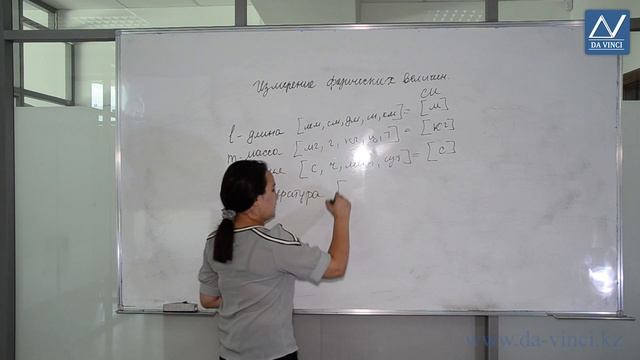 DA VINCI
Измерение физических величин.
СИ
l - длина [мм, см, дм, м, км] = [м]
m - масса [мг, г, кг, ц, т] = [кг]
[с, ч, мин, сут] = [с]
[
www.da-vinci.kz